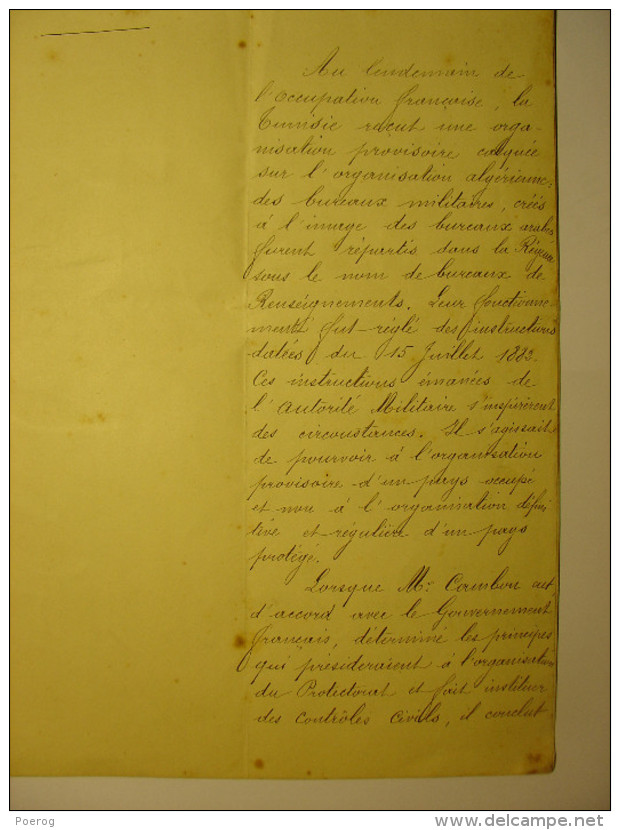 Au lendemain de
l'Occupation française, la
Tunisie reçut une orga-
nisation provisoire calquée
sur l'organisation algérienne:
des bureaux militaires, créés
à l'image des bureaux arabes
furent répartis dans la Régence
sous le nom de bureaux de
Renseignements. Leur fonctionne-
ment fut réglé des instructions
datées du 15 Juillet 1883.
Ces instructions émanées de
l'autorité Militaire s'inspirèrent
des circonstances. Il s'agissait
de pourvoir à l'organisation
provisoire d'un pays occupé
et non à l'organisation défini
tive et régulière d'un pays
protégé.
Lorsque Mr. Cambon eut,
d'accord avec le Gouvernement
français, déterminé les principes
qui présideraient à l'organisation
du Protectorat et fait instituer
des Contrôles Civils, il conclut
Poerog
delcampe.net